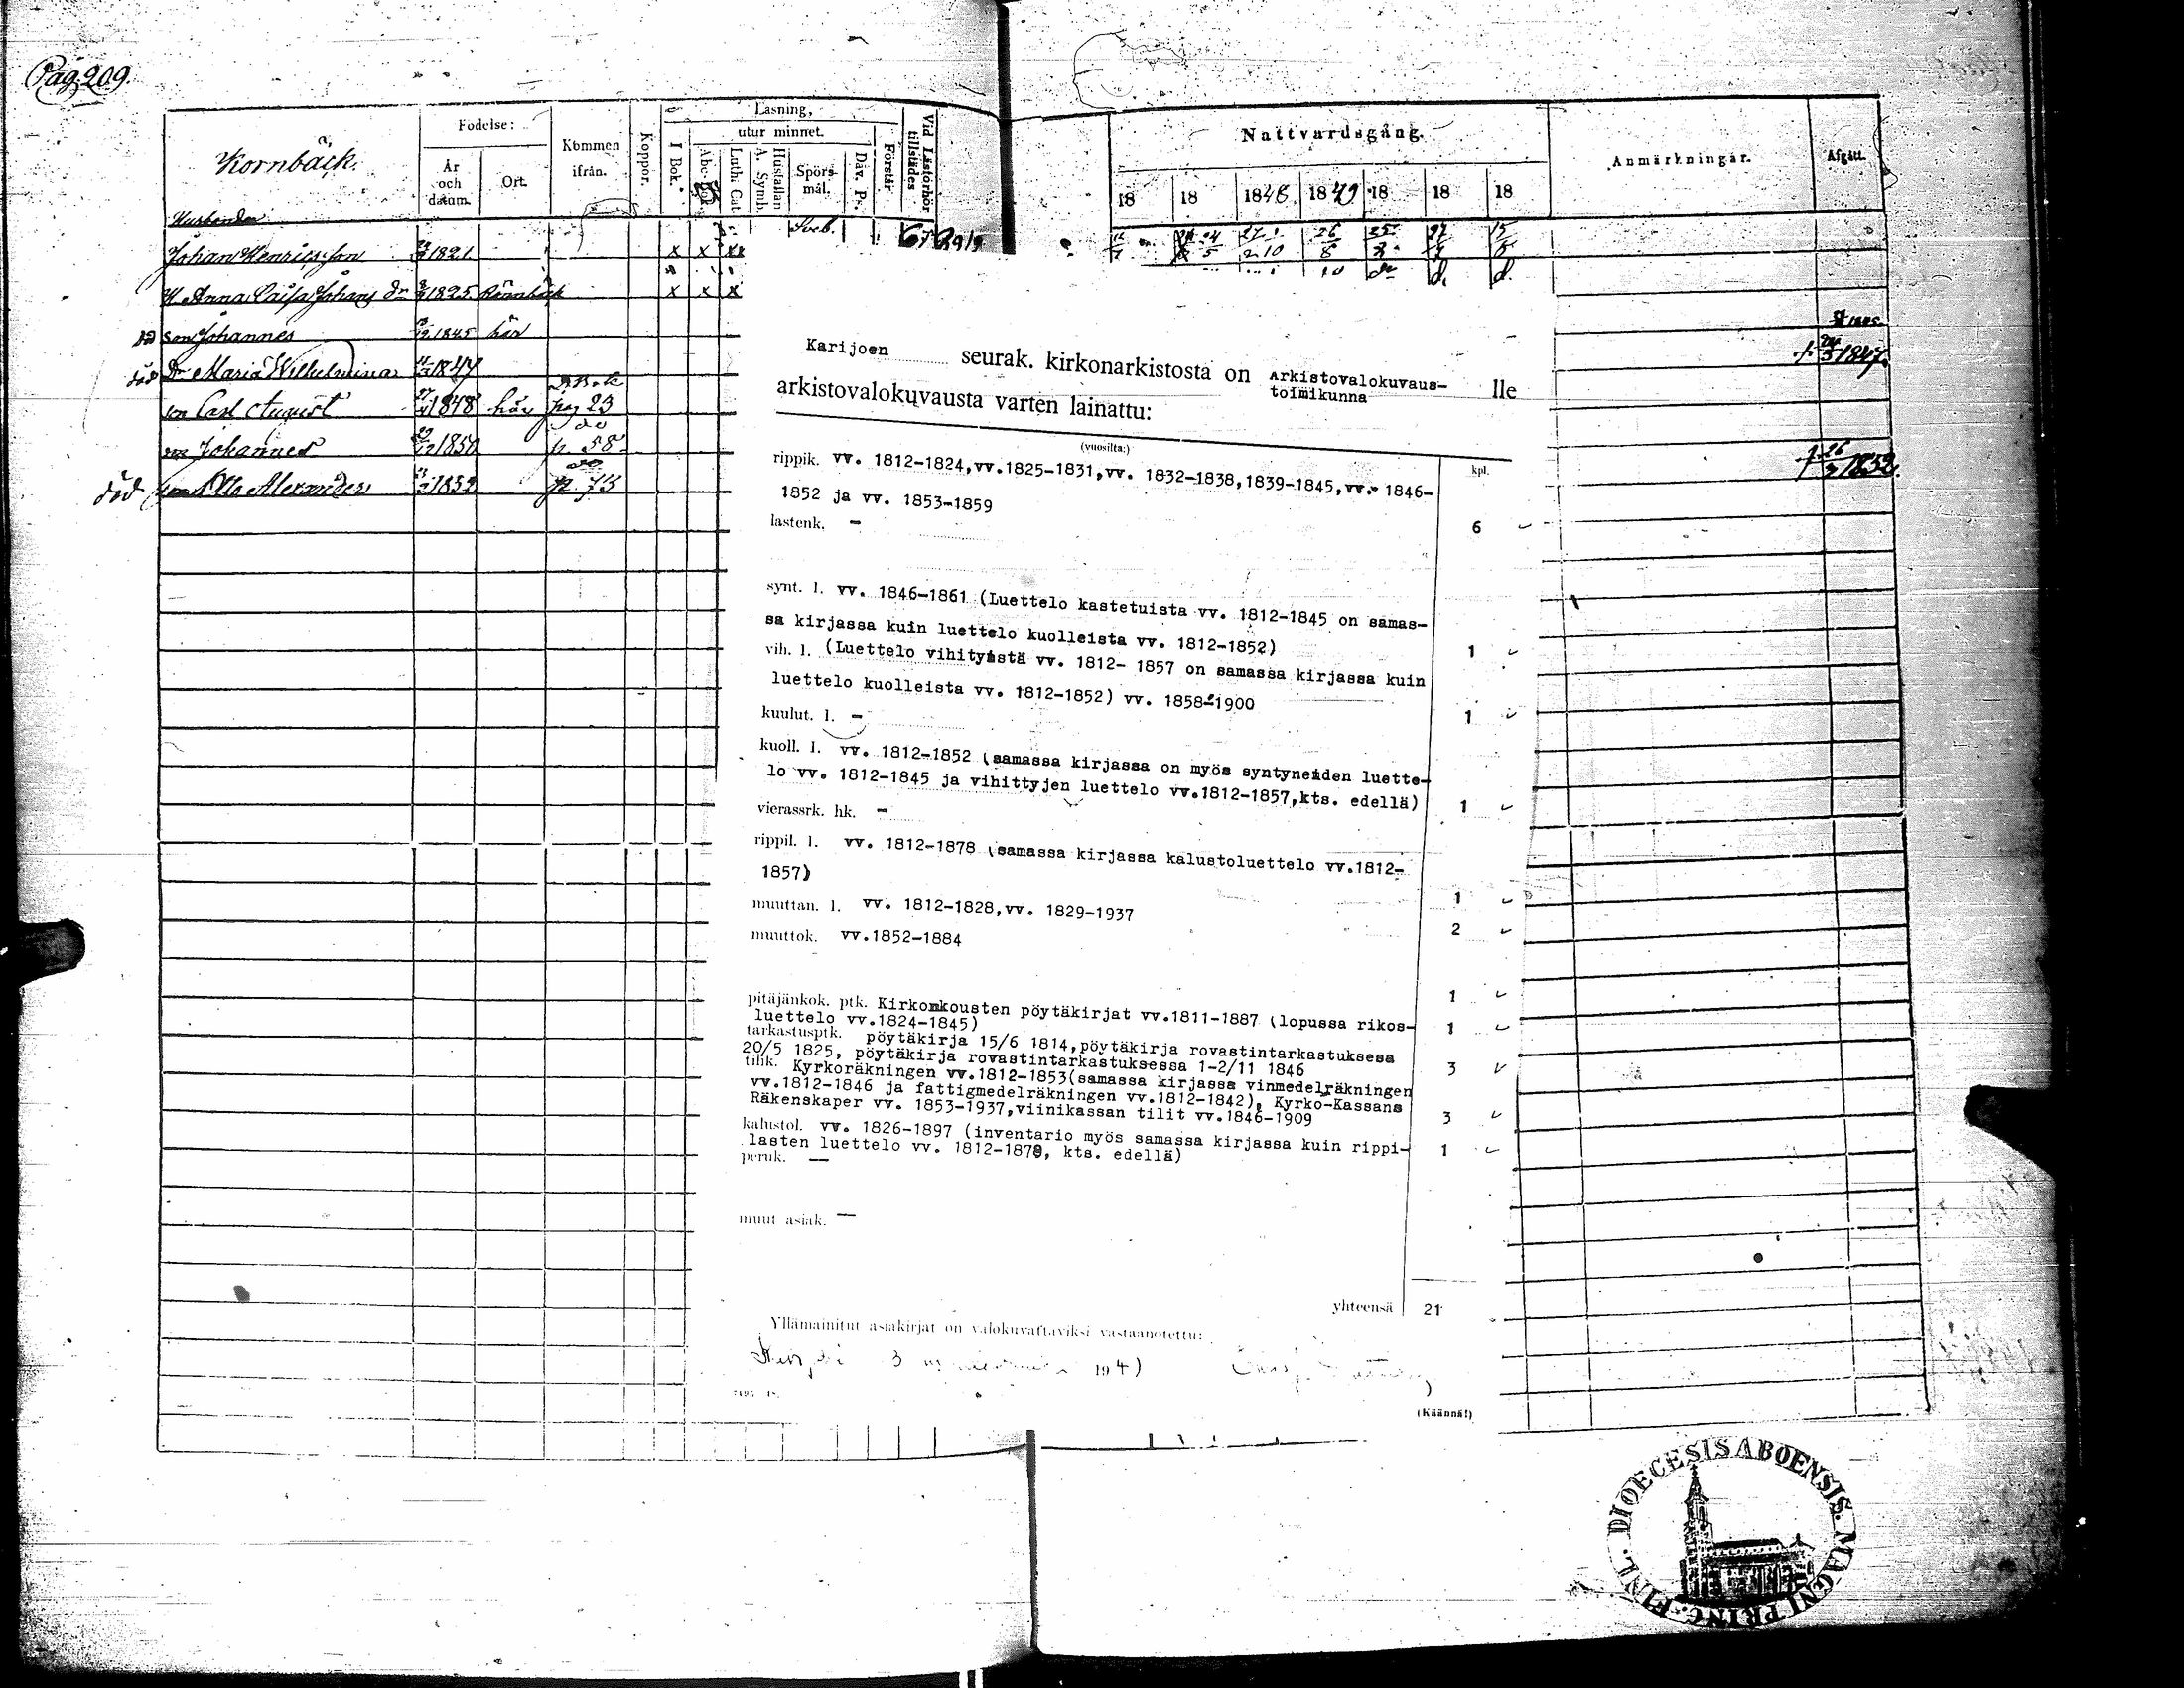 Pag. 209.
Kornbäck.
Födelse:
År och datum.
Ort.
Kommen ifrån.
Koppor.
Läsning,
utur minnet.
I Bok.
Abc-Bok
Luth. Cat.
A. Symb.
Hustaflan
Spörsmål.
Dav. Ps.
Förstår
Vid Läsförhör tillstädes
Nattvardsgång.
18 18 1848. 1849 18 18 18
Anmärkningar.
Afgått.
Husbonden
Johan Henricsson 1821 x x x
H Anna Caisa Johans dr 1825 x x x
Son Johannes 1845 här
död Dr Maria Wilhelmina 1847 + 1847.
son Carl August 1848 här pag 23
son Johannes 1850 p. 58
död son Otto Alexander 1853 p. 73 + 1853.
Karijoen seurak. kirkonarkistosta on Arkistovalokuvaus-
toimikunna lle
arkistovalokuvausta varten lainattu:
(vuosilta:) kpl.
rippik. vv. 1812-1824,vv.1825-1831,vv. 1832-1838,1839-1845,vv. 1846-
1852 ja vv. 1853-1859 6
lastenk. -
synt. l. vv. 1846-1861 (Luettelo kastetuista vv. 1812-1845 on samas-
sa kirjassa kuin luettelo kuolleista vv. 1812-1852) 1
vih. l. (Luettelo vihityistä vv. 1812- 1857 on samassa kirjassa kuin
luettelo kuolleista vv. 1812-1852) vv. 1858-1900 1
kuulut. l. -
kuoll. l. vv. 1812-1852 (samassa kirjassa on myös syntyneiden luette-
lo vv. 1812-1845 ja vihittyjen luettelo vv.1812-1857,kts. edellä) 1
vierassrk. hk. -
rippil. l. vv. 1812-1878 (samassa kirjassa kalustoluettelo vv.1812-
1857) 1
muuttan. l. vv. 1812-1828,vv. 1829-1937 2
muuttok. vv.1852-1884 1
pitäjänkok. ptk. Kirkonkousten pöytäkirjat vv.1811-1887 (lopussa rikos-
luettelo vv.1824-1845) 1
tarkastusptk. pöytäkirja 15/6 1814,pöytäkirja rovastintarkastuksesa
20/5 1825, pöytäkirja rovastintarkastuksessa 1-2/11 1846 3
tilik. Kyrkoräkningen vv.1812-1853(samassa kirjassa vinmedelräkningen
vv.1812-1846 ja fattigmedelräkningen vv.1812-1842), Kyrko-Kassans
Räkenskaper vv. 1853-1937,viinikassan tilit vv.1846-1909 3
kalustol. vv. 1826-1897 (inventario myös samassa kirjassa kuin rippi-
lasten luettelo vv. 1812-1878, kts. edellä) 1
peruk. —
muut asiak. —
yhteensä 21
Yllämainitut asiakirjat on valokuvattaviksi vastaanotettu:
194
(Käännä!)
DIOECESIS ABOENSIS. MAGNI PRINC. FINL.